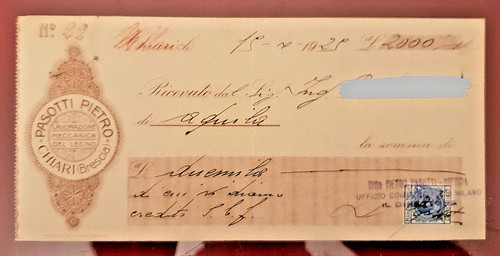 No 22
Chiari, li 15-2-1925 £ 2000
PASOTTI PIETRO
LAVORAZIONE
MECCANICA
DEL LEGNO
CHIARI (Brescia)
Ricevuto dal Sig. Ing
di Aquila
la somma di
£ duemila
di cui vi diamo
credito S.b.f.
Ditta PIETRO PASOTTI - BRESCIA
UFFICIO MILANO